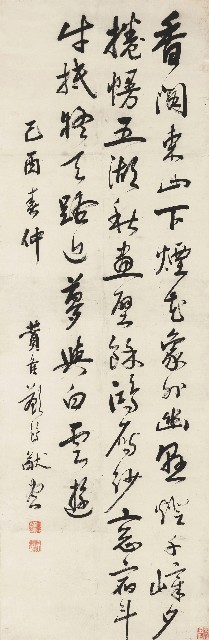 香閣東山下煙花象外幽懸燈千嶂夕
捲幔五湖秋畫壁餘鴻雁紗窗宿斗
牛疑天路近夢與白雲遊
己酉春仲
書